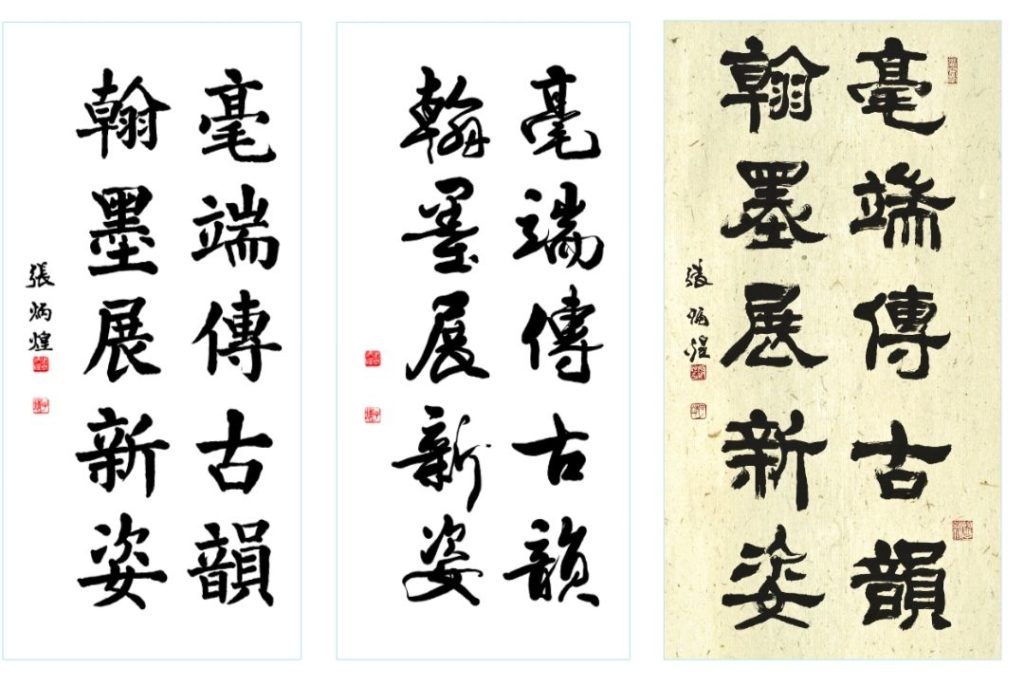 毫端傳古韻
翰墨展新姿
張炳煌
毫端傳古韻
翰墨展新姿
毫端傳古韻
翰墨展新姿
張炳煌